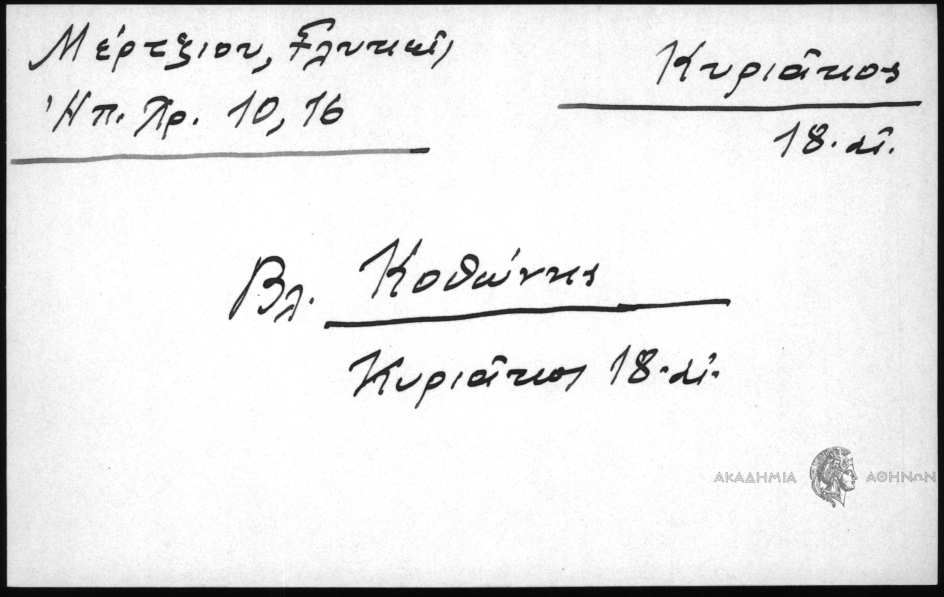 Μέρτζιου, Γλυκεῖς
Ἠπ. Χρ. 10, 16
Κυριᾶκος
18. αἰ.
Βλ. Κοθώνης
Κυριᾶκος 18. αἰ.
ΑΚΑΔΗΜΙΑ ΑΘΗΝΩΝ